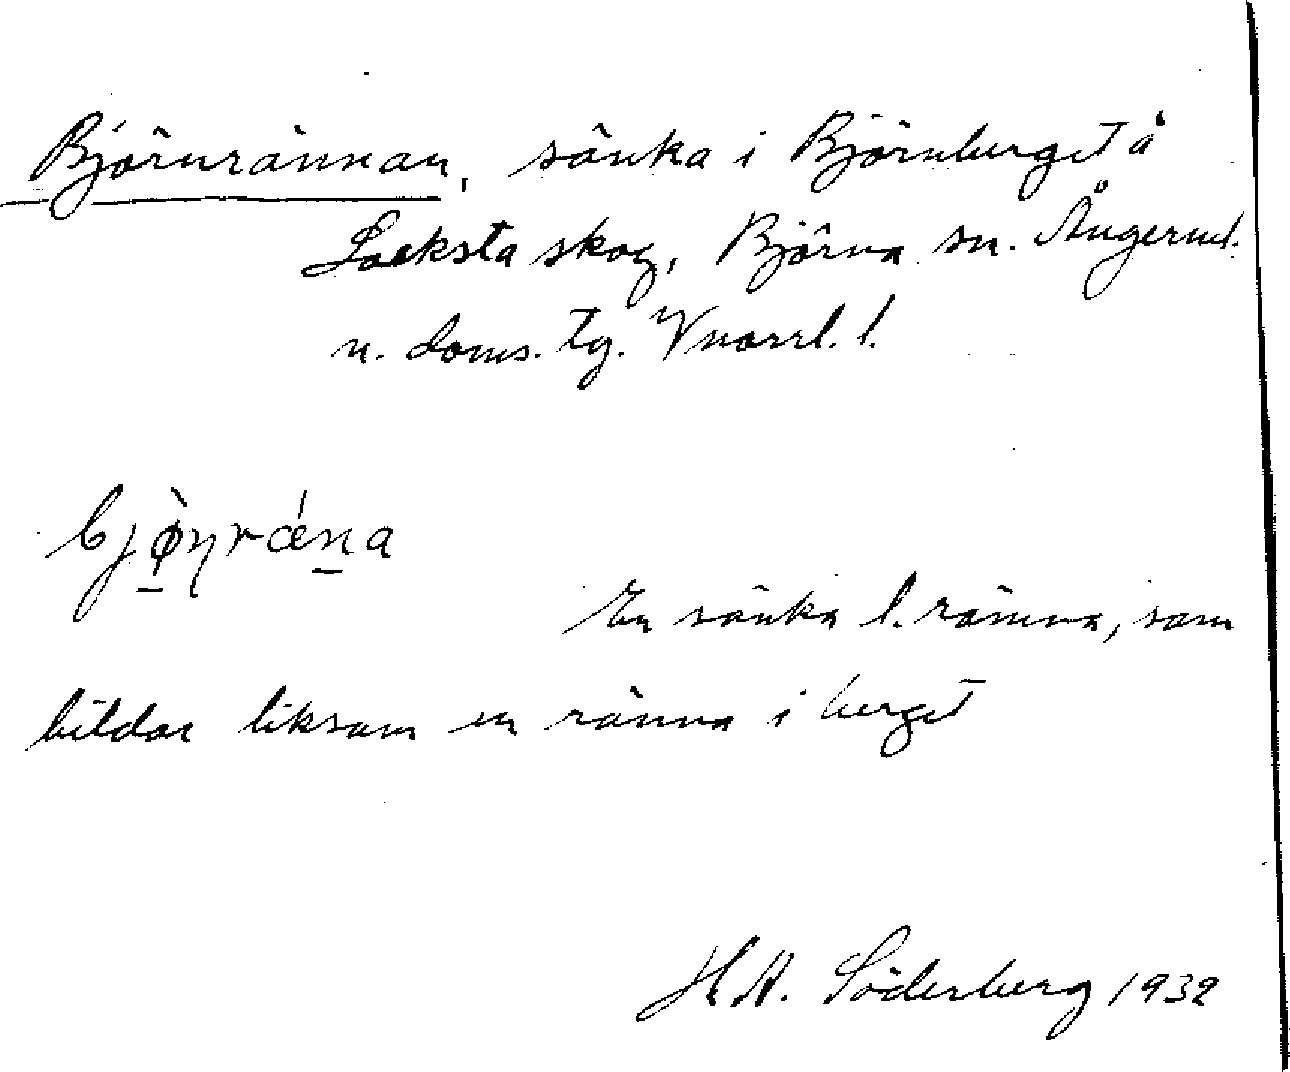 Björnrännan, sänka i Björnberget å
Locksta skog, Björna sn. Ångerml.
n. doms. tg. Vnorrl. l.
bjø̀ṇrǽna
En sänka l. ränna, som
bildar liksom en ränna i berget
H.A. Söderberg 1932